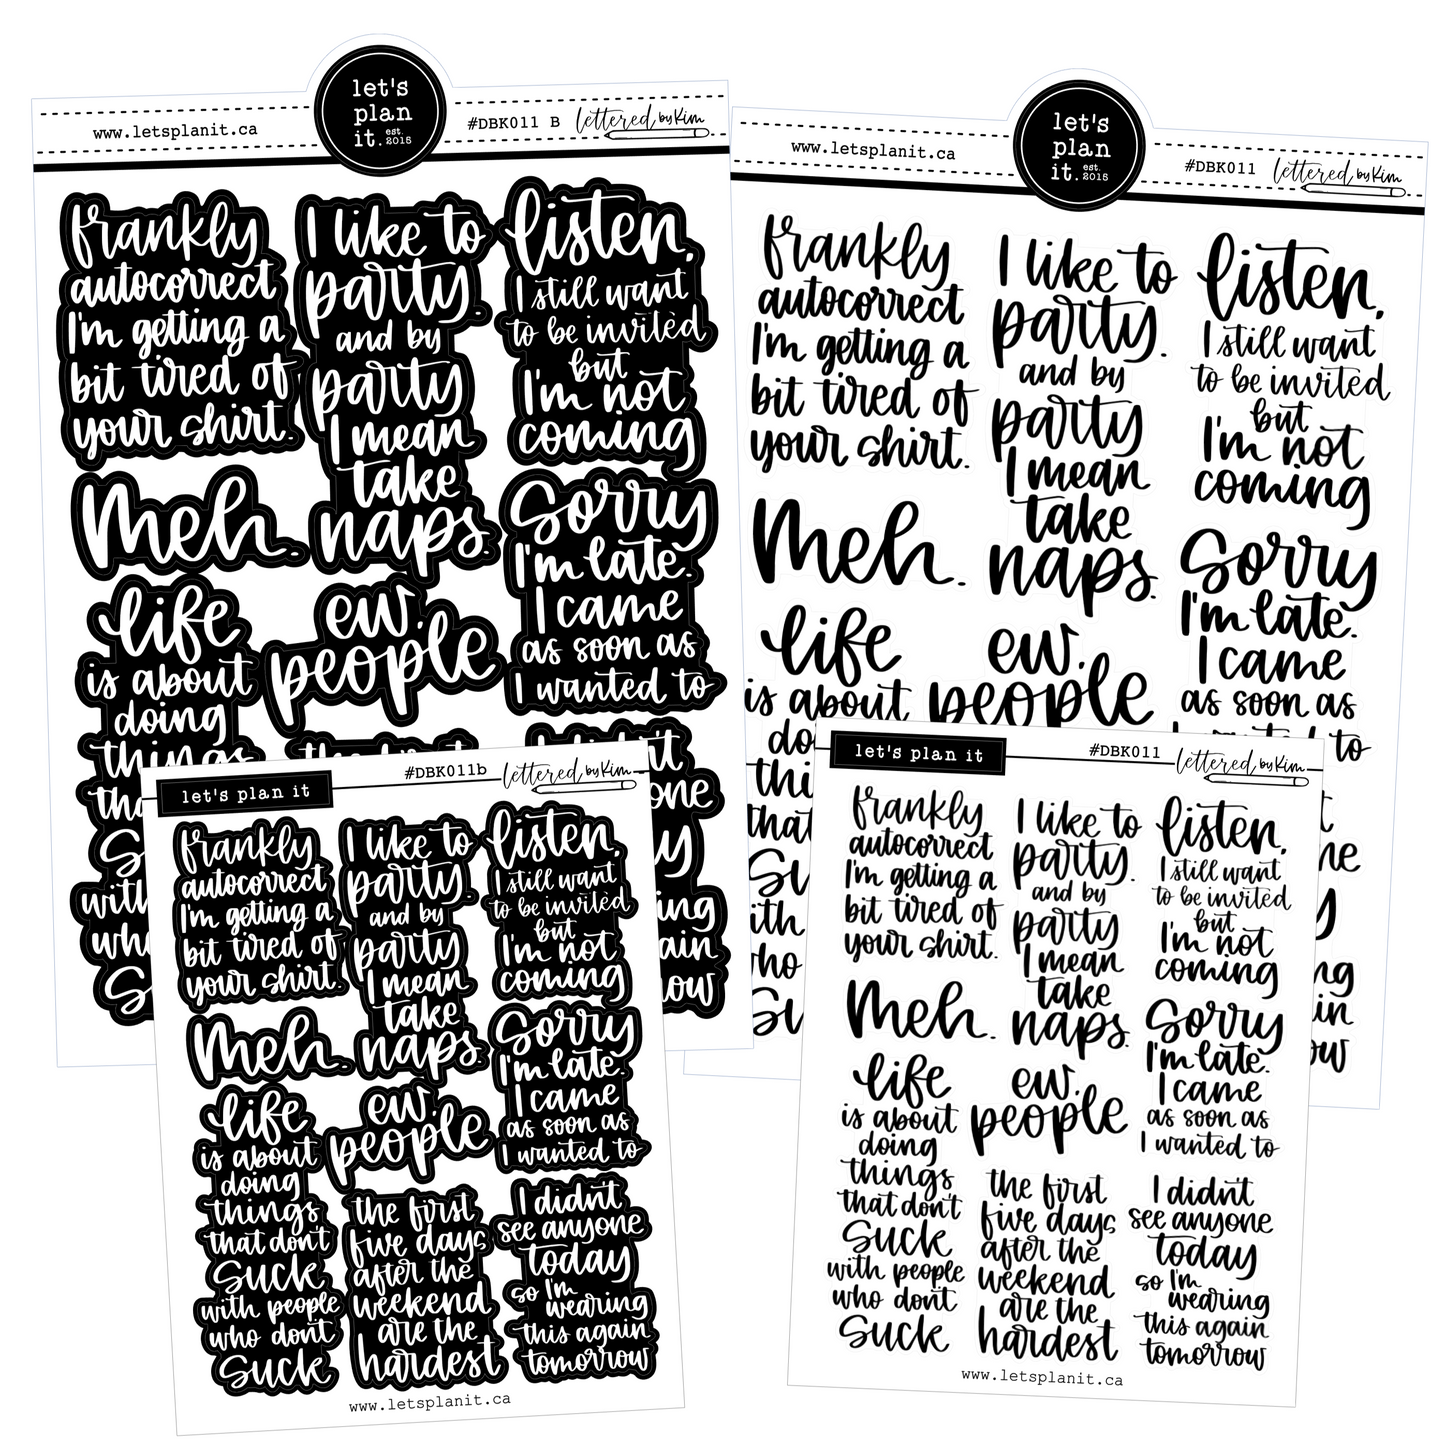 www.letsplanit.ca
let's
plan
it. est. 2015
#DBK011 B
lettered by Kim
frankly
autocorrect
I'm getting a
bit tired of
your shirt.
Meh.
life
is about
doing
things
I like to
party.
and by
party
I mean
take
naps.
ew.
people
listen,
I still want
to be invited
but
I'm not
coming
Sorry
I'm late.
I came
as soon as
I wanted to
www.letsplanit.ca
let's
plan
it. est. 2015
#DBK011
lettered by Kim
frankly
autocorrect
I'm getting a
bit tired of
your shirt.
Meh.
life
is about
I like to
party.
and by
party
I mean
take
naps.
ew.
people
listen,
I still want
to be invited
but
I'm not
coming
Sorry
I'm late.
I came
as soon as
let's plan it
#DBK011b
lettered by Kim
frankly
autocorrect
I'm getting a
bit tired of
your shirt.
Meh.
life
is about
doing
things
that don't
suck
with people
who don't
suck
I like to
party.
and by
party
I mean
take
naps.
ew.
people
the first
five days
after the
weekend
are the
hardest
listen,
I still want
to be invited
but
I'm not
coming
Sorry
I'm late.
I came
as soon as
I wanted to
I didn't
see anyone
today
so I'm
wearing
this again
tomorrow
www.letsplanit.ca
let's plan it
#DBK011
lettered by Kim
frankly
autocorrect
I'm getting a
bit tired of
your shirt.
Meh.
life
is about
doing
things
that don't
suck
with people
who don't
suck
I like to
party.
and by
party
I mean
take
naps.
ew.
people
the first
five days
after the
weekend
are the
hardest
listen,
I still want
to be invited
but
I'm not
coming
Sorry
I'm late.
I came
as soon as
I wanted to
I didn't
see anyone
today
so I'm
wearing
this again
tomorrow
www.letsplanit.ca